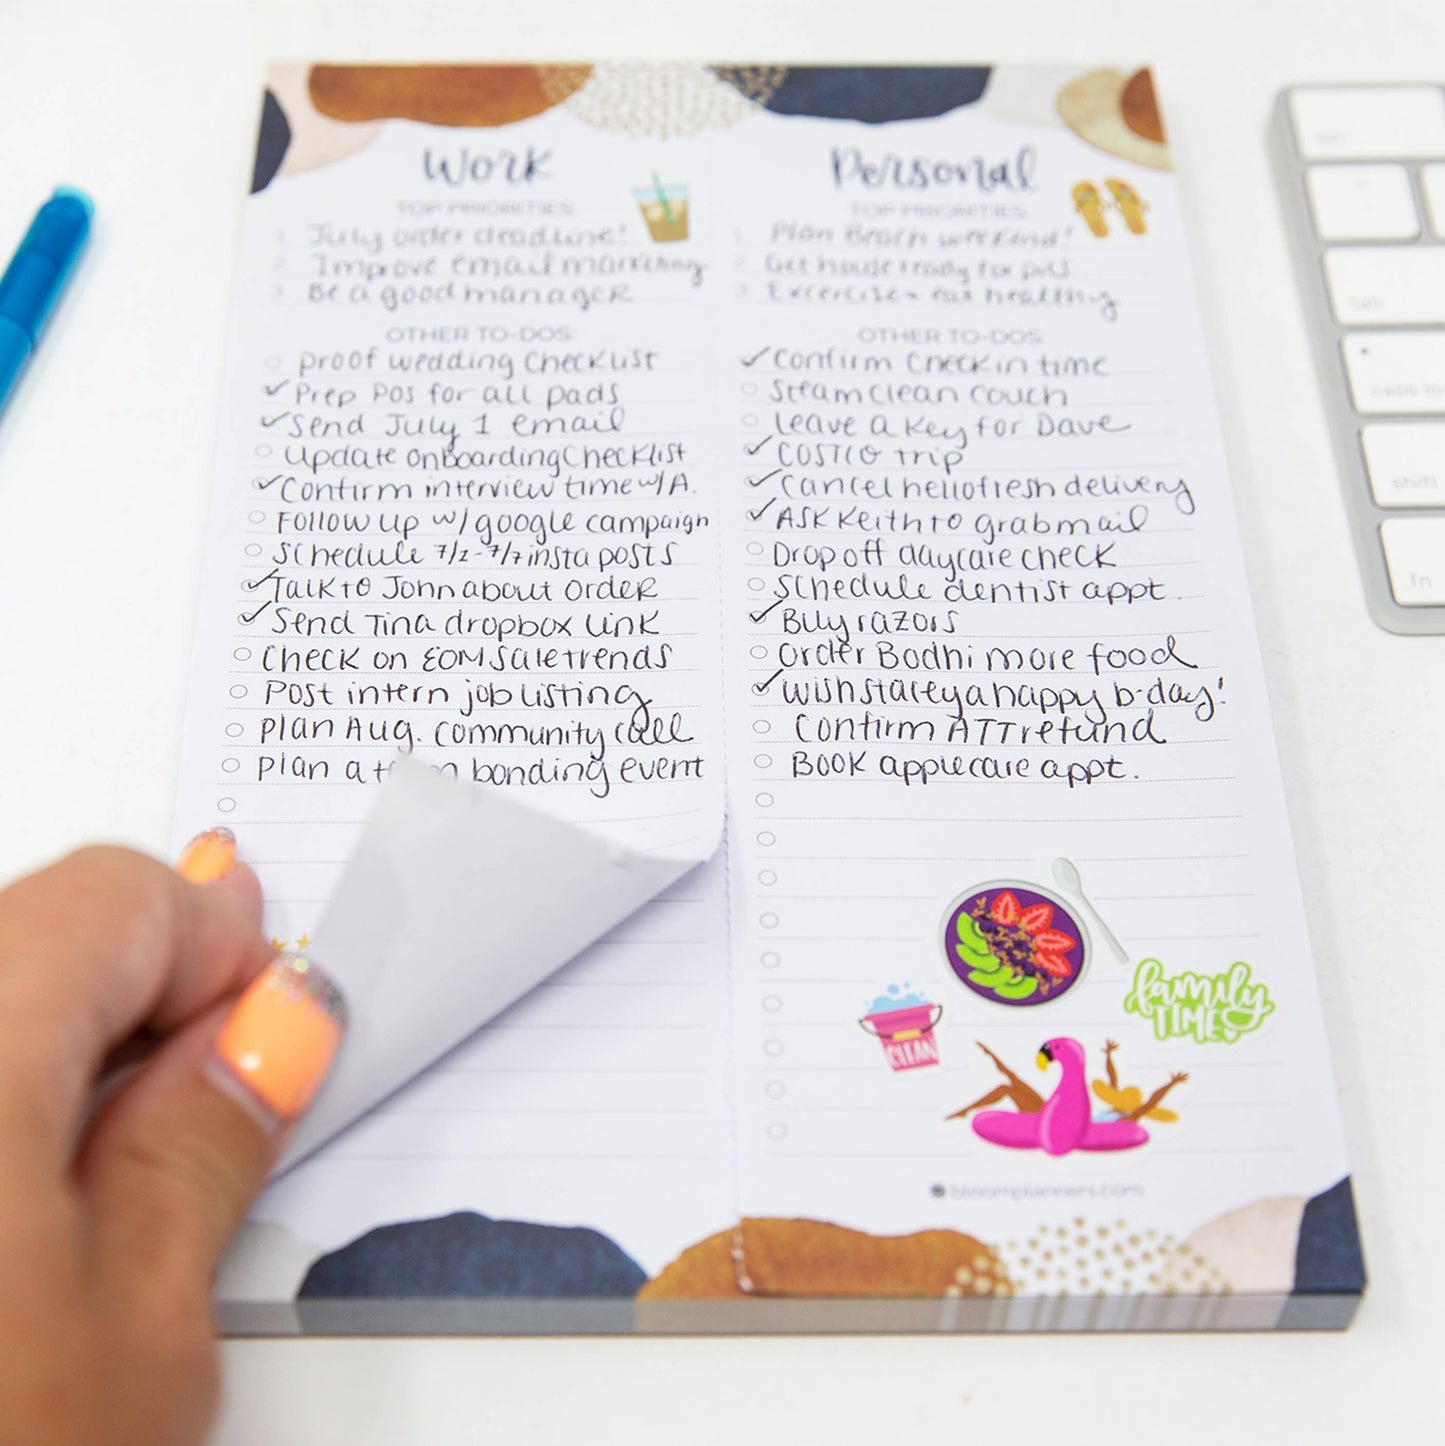 Work
TOP PRIORITIES:
1 July order deadline!
2 Improve email marketing
3 Be a good manager
OTHER TO-DOS:
proof wedding checklist
Prep POs for all pads
Send July 1 email
update onboarding checklist
Confirm interview time w/A.
Follow up w/ google campaign
Schedule 7/1-7/7 insta posts
Talk to John about order
Send Tina dropbox link
Check on EOM sale trends
Post intern job listing
Plan Aug. community call
Plan a bonding event
Personal
TOP PRIORITIES:
1 Plan Beach weekend!
2 Get house ready for
3 Excercise + eat healthy
OTHER TO-DOS:
Confirm Check in time
Steam clean couch
Leave a key for Dave
COSTCO trip
Cancel hellofresh delivery
ASK Keith to grab mail
Drop off daycare check
Schedule dentist appt.
Buy razors
Order Bodhi more food
Wish staceya happy b-day!
Confirm ATT refund
BOOK applecare appt.
CLEAN
family
TIME
bloomplanners.com
tab
caps lo
shift
fn